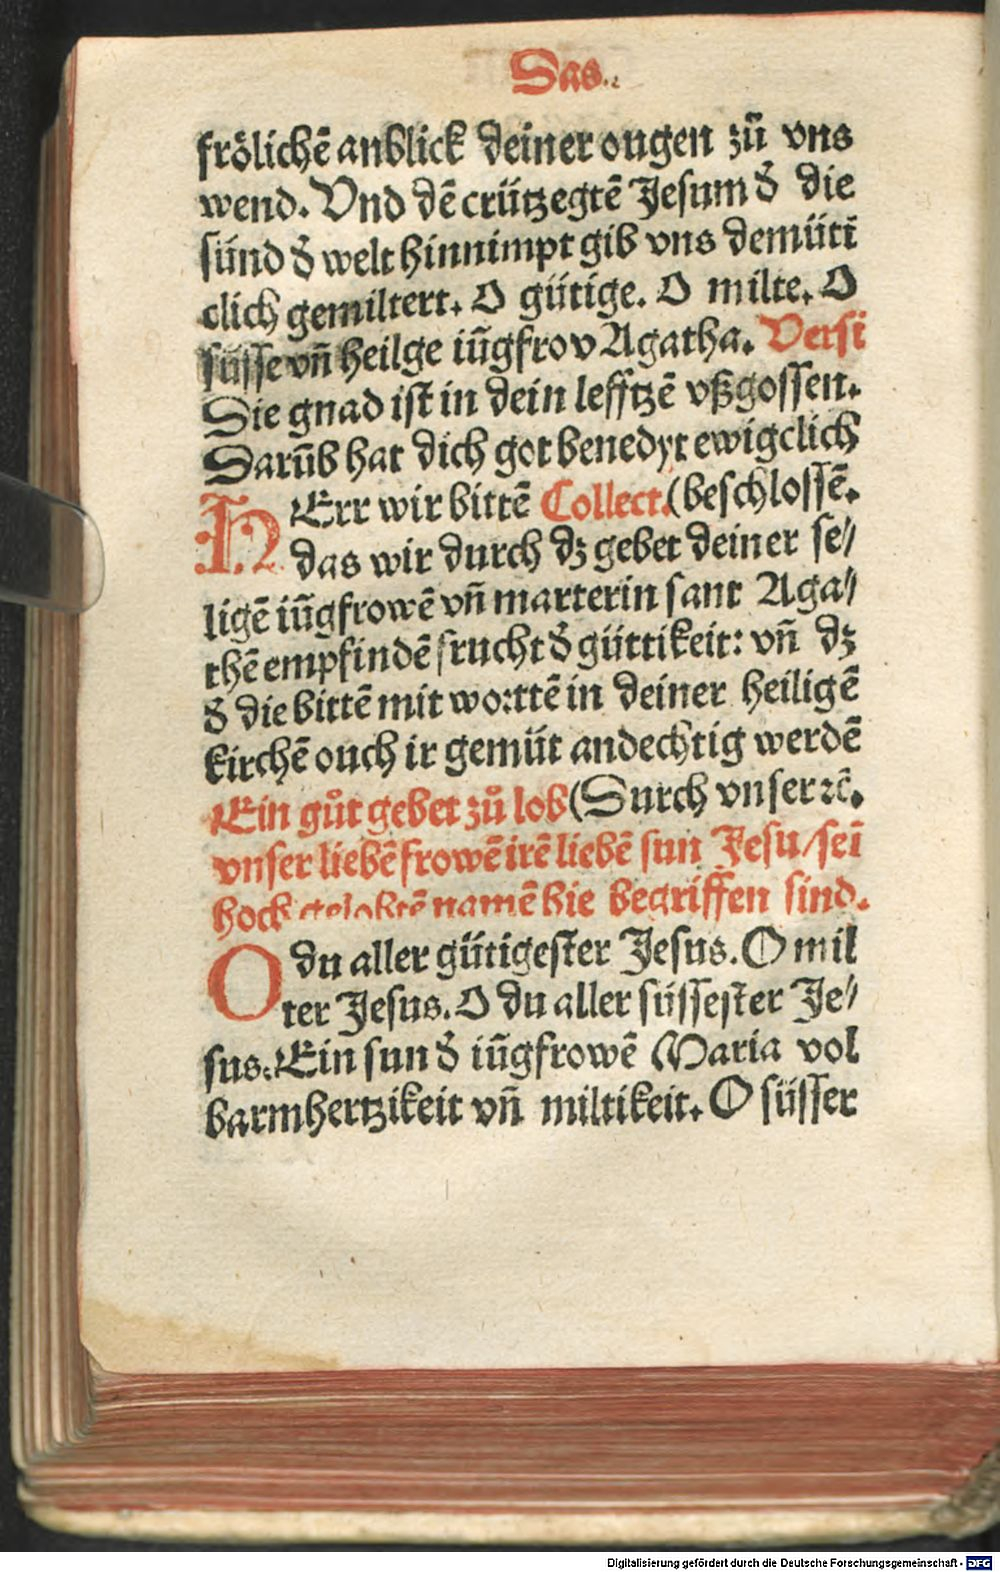 Das.
frölichē anblick deiner ougen zū vns
wend. Vnd dē crützegtē Jesum đ die
sünd đ welt hinnimpt gib vns demüti
clich gemiltert. O gütige. O milte. O
süsse vñ heilge iūgfrov Agatha. Versi
Die gnad ist in dein lefftzē vßgossen.
Darūb hat dich got benedyt ewigclich
HErr wir bittē Collect. (beschlossē.
das wir durch dz gebet deiner se⸗
ligē iūgfrowē vñ marterin sant Aga⸗
thē empfindē frucht đ güttikeit: vñ dz
đ die bittē mit wortē in deiner heiligē
kirchē ouch ir gemüt andechtig werdē
Ein gůt gebet zů lob (Durch vnser ⁊c̄.
vnser liebē frowē irē liebē sun Jesu/sei
hoch gelobtē namē hie begriffen sind.
O du aller gütigester Jesus. O mil
ter Jesus. O du aller süssester Je⸗
sus. Ein sun đ iūgfrowē Maria vol
barmhertzikeit vñ miltikeit. O süsser
Digitalisierung gefördert durch die Deutsche Forschungsgemeinschaft - DFG